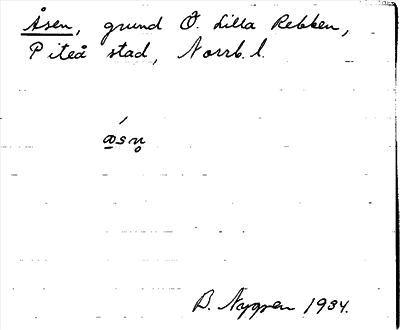 Åsen, grund Ö. Lilla Rebben,
Piteå stad, Norrb. l.
ǻsn̥
B. Nygren 1934.